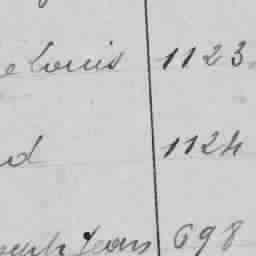 e Louis 1123
d 1124
seph Jean 698